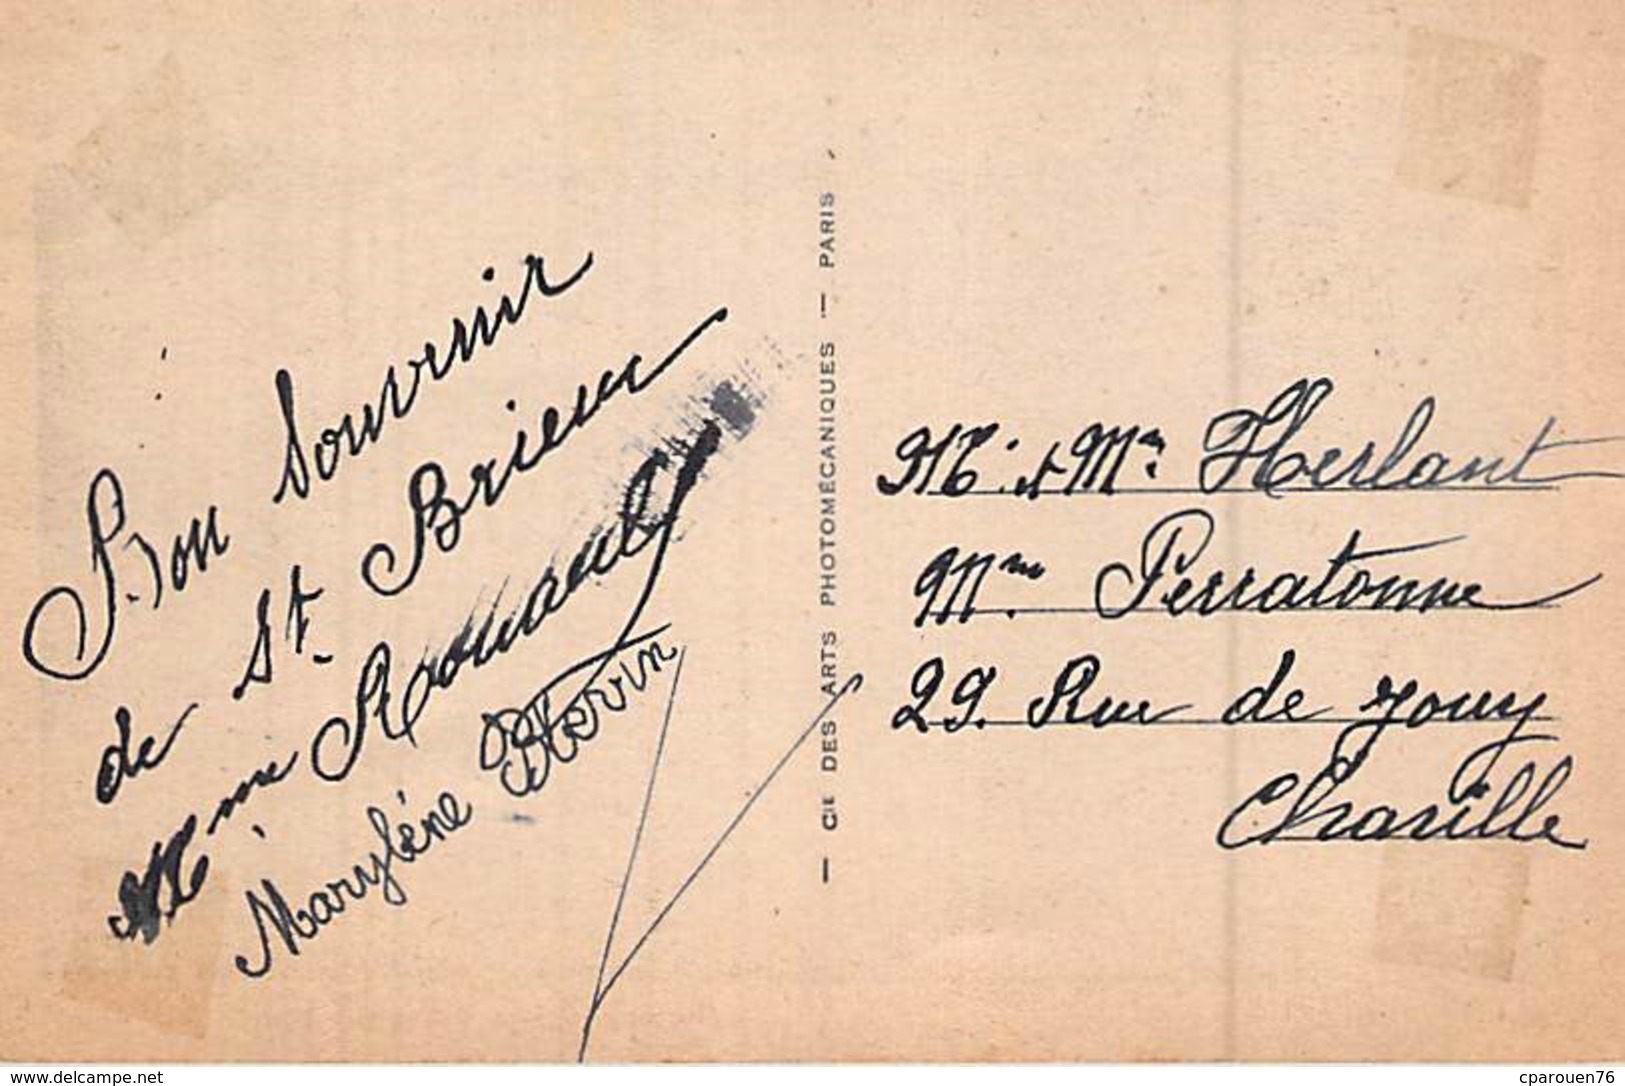 Bon Souvenir
de St. Brieuc
Mme Rouault
Marylène
CIE DES ARTS PHOTOMÉCANIQUES — PARIS
M. et Mme Herlant
Mme Perratonne
29. Rue de Jouy
Chaville
www.delcampe.net
cparouen76